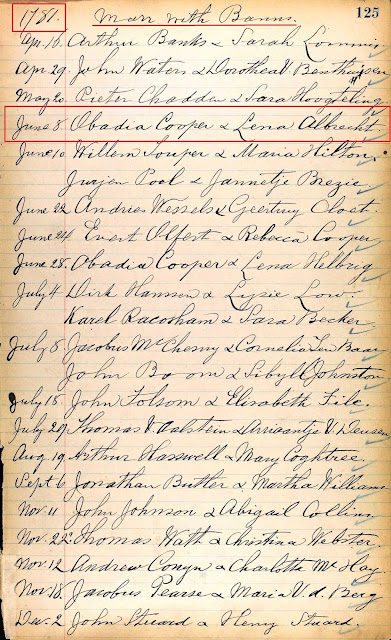 1781. Marr with Banns. 125
Apr. 10. Arthur Banks & Sarah Lommis
Apr 29. John Waters & Dorothea V. Benthuysen
May 20. Pieter Chadden & Sara Hoogteling
June 8. Obadia Cooper & Lena Albrecht.
June 10 Willem Souper & Maria Hilton.
Jurjen Pool & Jannetje Brezie.
June 22 Andries Wessels & Geertruy Cloet.
June 24. Evert Olfert & Rebecca Cooper
June 28. Obadia Cooper & Lena Helbrig
July 4 Dirk Hannsen & Lysie Low.
Karel Racosham & Sara Becker
July 8 Jacobus McChemy & Cornelia Ten Baar
John Boom & Sibyll Johnston
July 15 John Folsom & Elisabeth File.
July 29 Thomas V. Aalstein & Arriaantje V. Deusen
Aug. 19 Arthur Hasswell & Mary Coghtree.
Sept 6 Jonathan Butler & Martha Williams
Nov. 11 John Johnson & Abigail Collins
Nov. 22. Thomas Wath & Christina Webster.
Nov. 12 Andrew Conyn & Charlotte McKay.
Nov. 18. Jacobus Pearse & Maria V. d. Berg
Dec. 2 John Stuard & Henry Stuard.